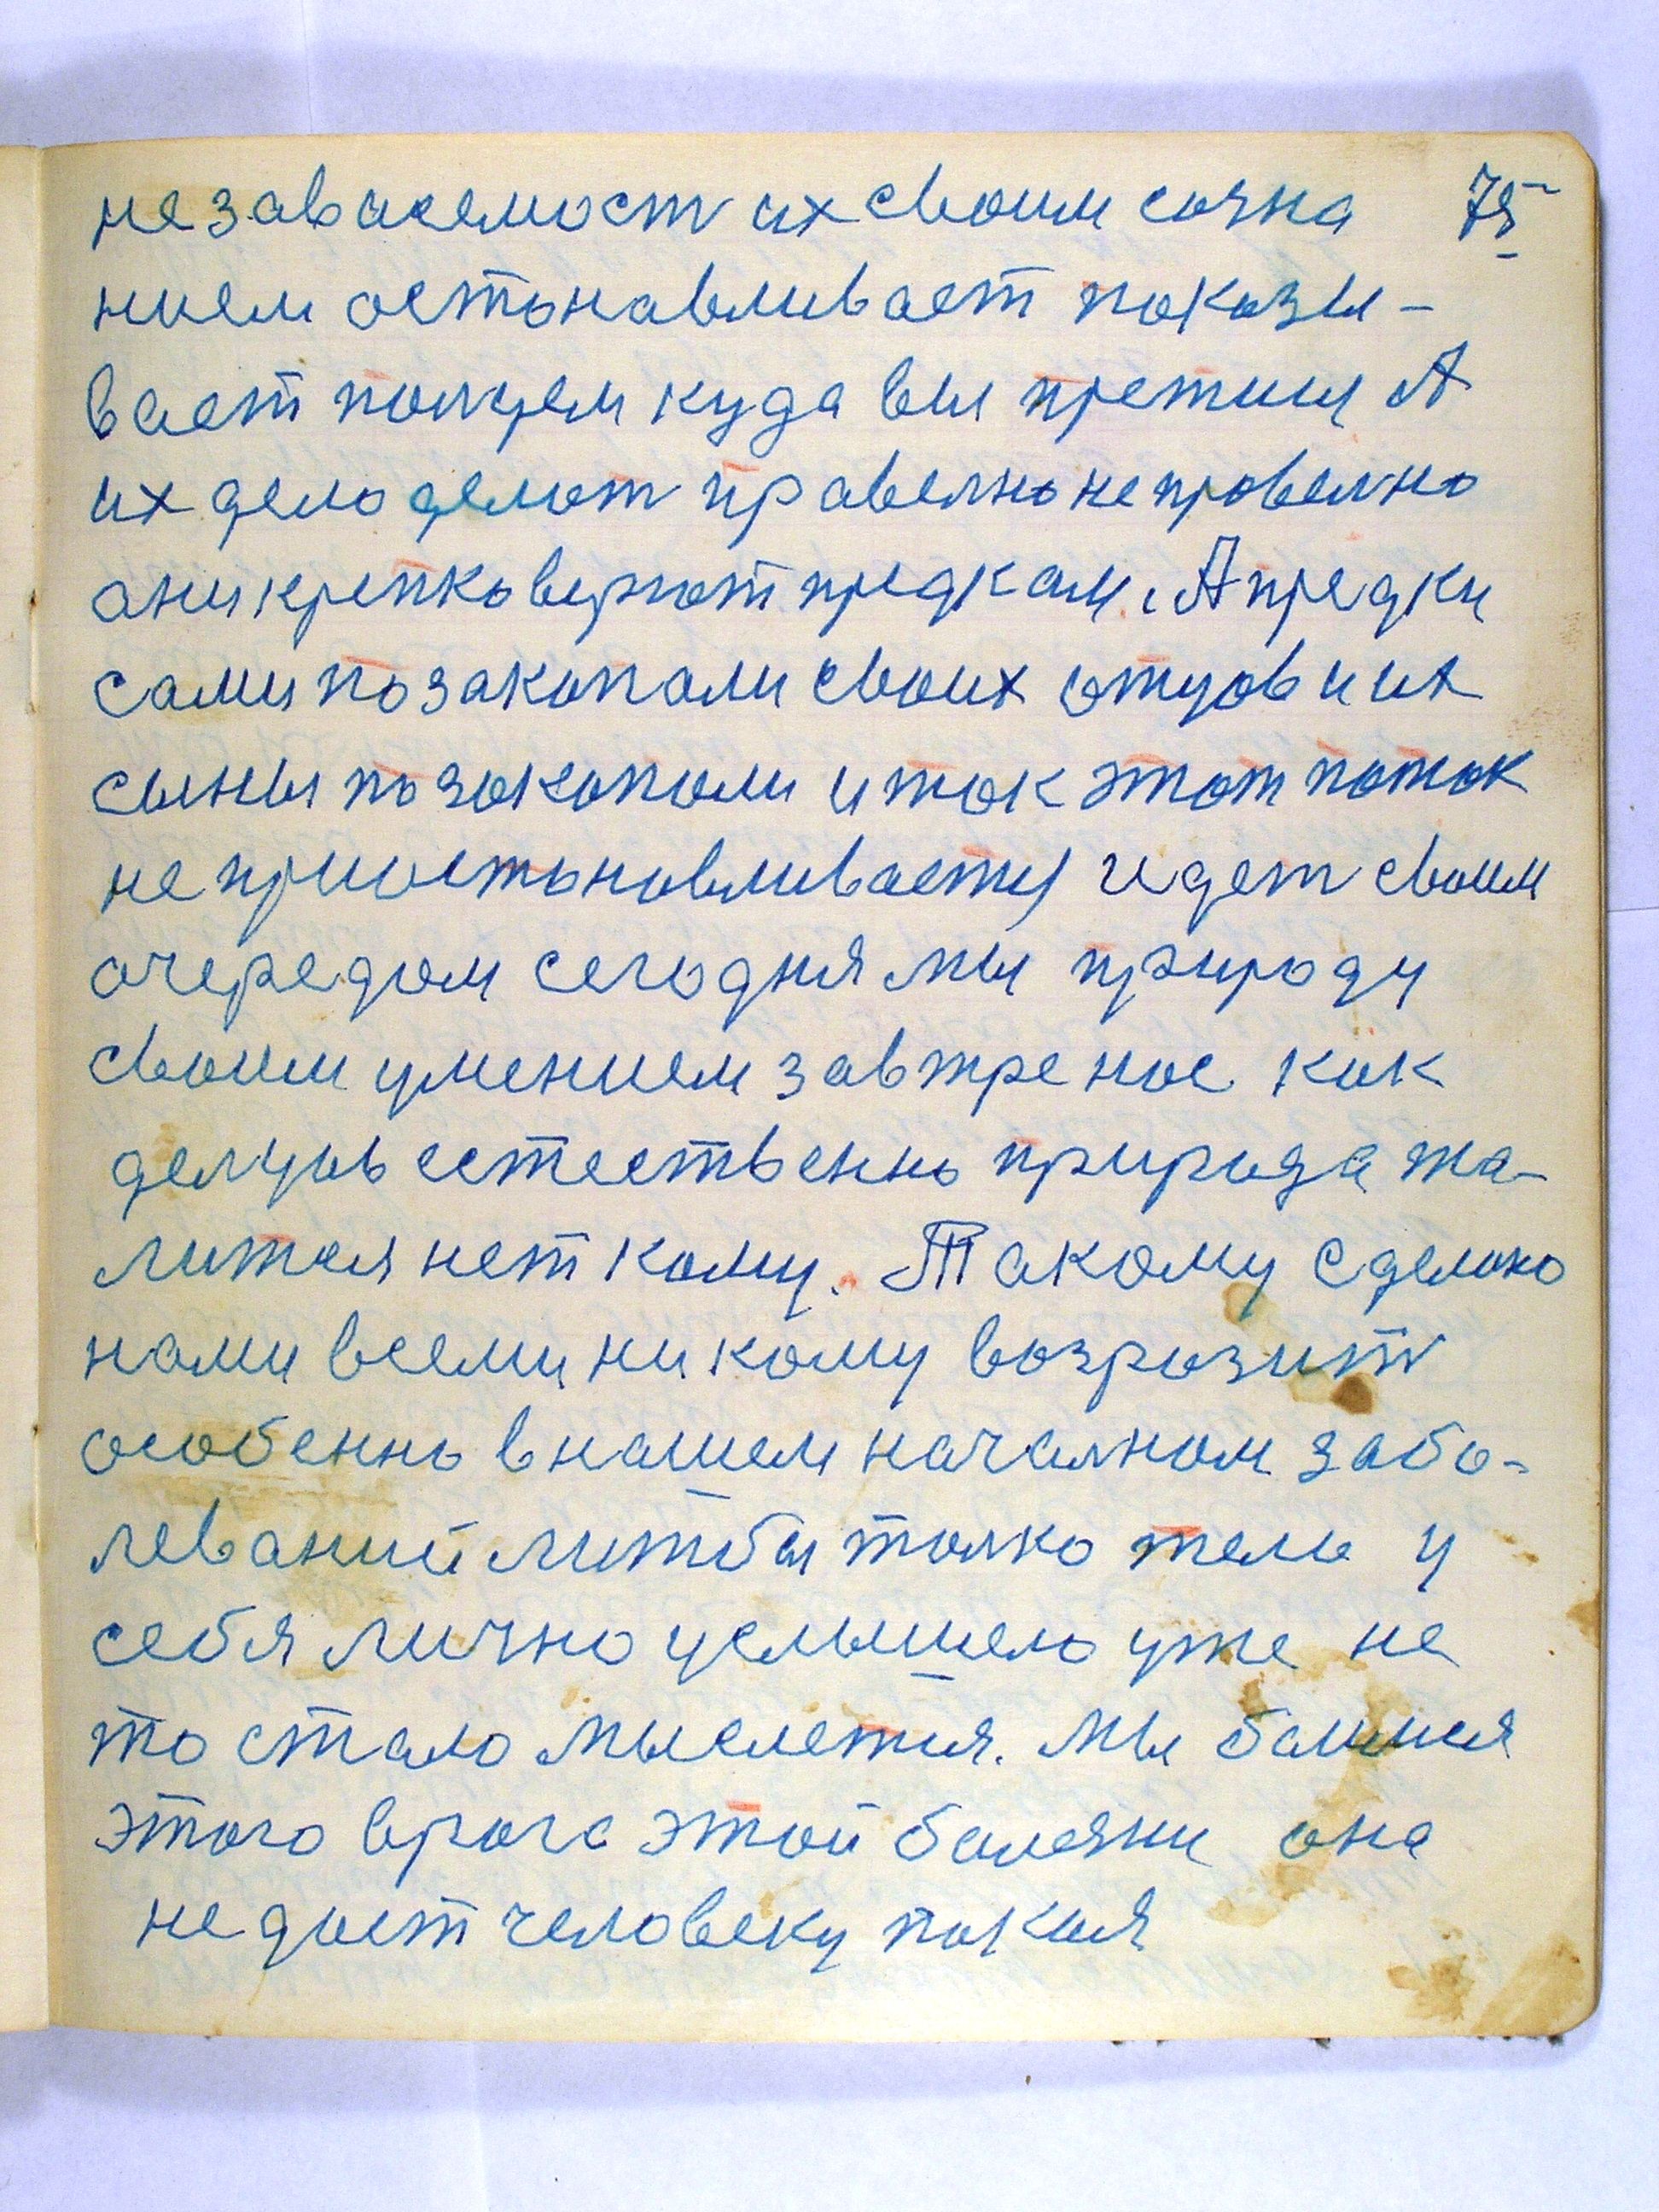 незавасемост их своим созна 75
нием астонавливает показы-
вает полцем куда вы претися А
их дело делют правелно неправелно
они крепко верют предкам. А предки
сами позакопали своих отцов и их
сыны позакопали и так этот поток
не приостонавливается идет своим
очередом сегодня мы природу
своим умением завтре нас как
делцов естественно природа жа-
литься нет кому. Такому сделоно
нами всеми ни кому возрозит
особенно внашем началном забо-
леваний литбы толко тело у
себя лично услышело уже не
то стало мыслется. Мы боимся
этого врага этой болезни она
не дает человеку покоя